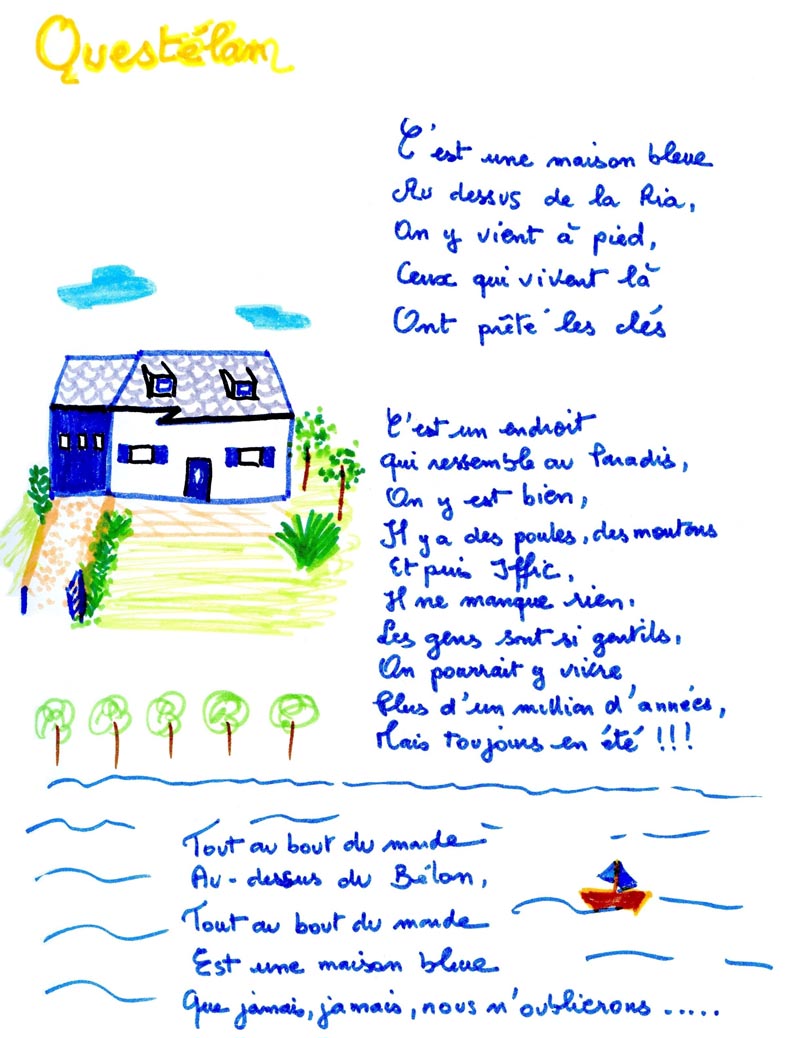 Questélam
C'est une maison bleue
Au dessus de la Ria,
On y vient à pied,
Ceux qui vivent là
Ont prêté les clés
C'est un endroit
qui ressemble au Paradis,
On y est bien,
Il y a des poules, des moutons
Et puis Iffic,
Il ne manque rien.
Les gens sont si gentils,
On pourrait y vivre
Plus d'un million d'années,
Mais toujours en été !!!
Tout au bout du monde
Au-dessus du Bélon,
Tout au bout du monde
Est une maison bleue
Que jamais, jamais, nous n'oublierons .....